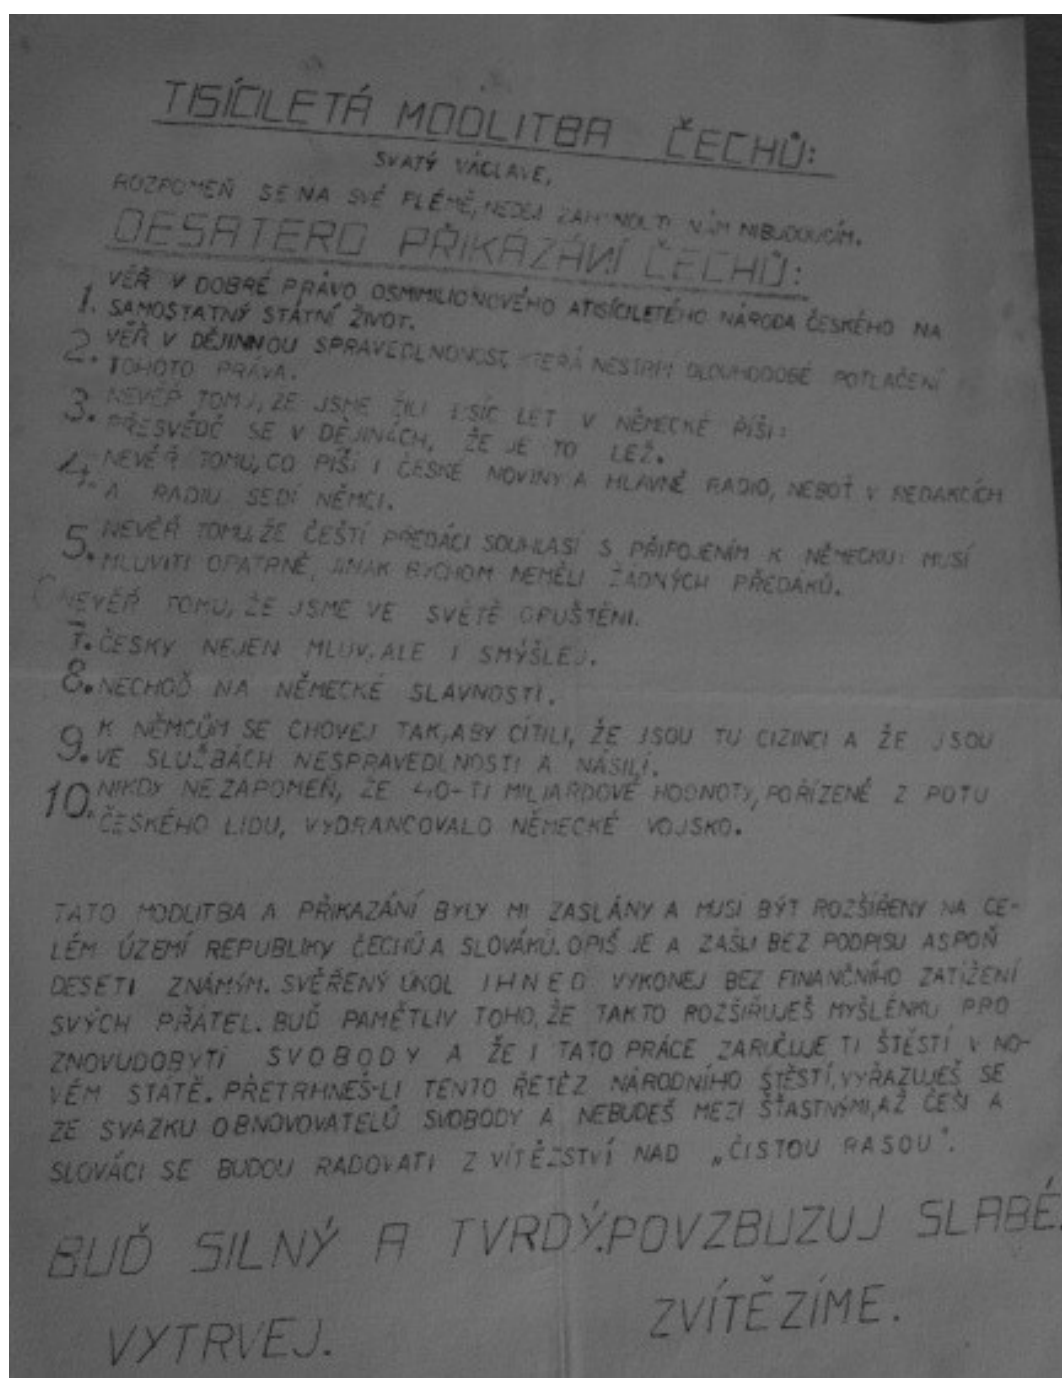 TISÍCILETÁ MODLITBA ČECHŮ:
SVATÝ VÁCLAVE,
ROZPOMEŇ SE NA SVÉ PLÉMĚ, NEDEJ ZAHYNOUTI NÁM NIBUDOUCÍM.
DESATERO PŘIKÁZÁNÍ ČECHŮ:
1. VĚŘ V DOBRÉ PRÁVO OSMIMILIONOVÉHO ATISÍCILETÉHO NÁRODA ČESKÉHO NA
SAMOSTATNÝ STÁTNÍ ŽIVOT.
2. VĚŘ V DĚJINNOU SPRAVEDLNOVOST, KTERÁ NESTRPÍ DLOUHODOBÉ POTLAČENÍ
TOHOTO PRÁVA.
3. NEVĚŘ TOMU, ŽE JSME ŽILI TISÍC LET V NĚMECKÉ ŘÍŠI:
PŘESVĚDČ SE V DĚJINÁCH, ŽE JE TO LEŽ.
4. NEVĚŘ TOMU, CO PÍŠÍ I ČESKÉ NOVINY A HLAVNĚ RADIO, NEBOŤ V REDAKCÍCH
A RADIU SEDÍ NĚMCI.
5. NEVĚŘ TOMU, ŽE ČEŠTÍ PŘEDÁCI SOUHLASÍ S PŘIPOJENÍM K NĚMECKU: MUSÍ
MLUVITI OPATRNĚ, JINAK BYCHOM NEMĚLI ŽÁDNÝCH PŘEDÁKŮ.
NEVĚŘ TOMU, ŽE JSME VE SVĚTĚ OPUŠTĚNI.
7. ČESKY NEJEN MLUV, ALE I SMÝŠLEJ.
8. NECHOĎ NA NĚMECKÉ SLAVNOSTI.
9. K NĚMCŮM SE CHOVEJ TAK, ABY CÍTILI, ŽE JSOU TU CIZINCI A ŽE JSOU
VE SLUŽBÁCH NESPRAVEDLNOSTI A NÁSILÍ.
10. NIKDY NEZAPOMEŇ, ŽE 40-TI MILIARDOVÉ HODNOTY, POŘÍZENÉ Z POTU
ČESKÉHO LIDU, VYDRANCOVALO NĚMECKÉ VOJSKO.
TATO MODLITBA A PŘIKAZÁNÍ BYLY MI ZASLÁNY A MUSÍ BÝT ROZŠÍŘENY NA CE-
LÉM ÚZEMÍ REPUBLIKY ČECHŮ A SLOVÁKŮ. OPIŠ JE A ZAŠLI BEZ PODPISU ASPOŇ
DESETI ZNÁMÝM. SVĚŘENÝ ÚKOL IHNED VYKONEJ BEZ FINANČNÍHO ZATÍŽENÍ
SVÝCH PŘÁTEL. BUĎ PAMĚTLIV TOHO, ŽE TAKTO ROZŠIŘUJEŠ MYŠLÉNKU PRO
ZNOVUDOBYTÍ SVOBODY A ŽE I TATO PRÁCE ZARUČUJE TI ŠTĚSTÍ V NO-
VÉM STÁTĚ. PŘETRHNEŠ-LI TENTO ŘETĚZ NÁRODNÍHO ŠTĚSTÍ, VYŘAZUJEŠ SE
ZE SVAZKU OBNOVOVATELŮ SVOBODY A NEBUDEŠ MEZI ŠŤASTNÝMI, AŽ ČEŠI A
SLOVÁCI SE BUDOU RADOVATI Z VÍTĚZSTVÍ NAD „ČISTOU RASOU".
BUĎ SILNÝ A TVRDÝ. POVZBUZUJ SLABÉ.
VYTRVEJ. ZVÍTĚZÍME.